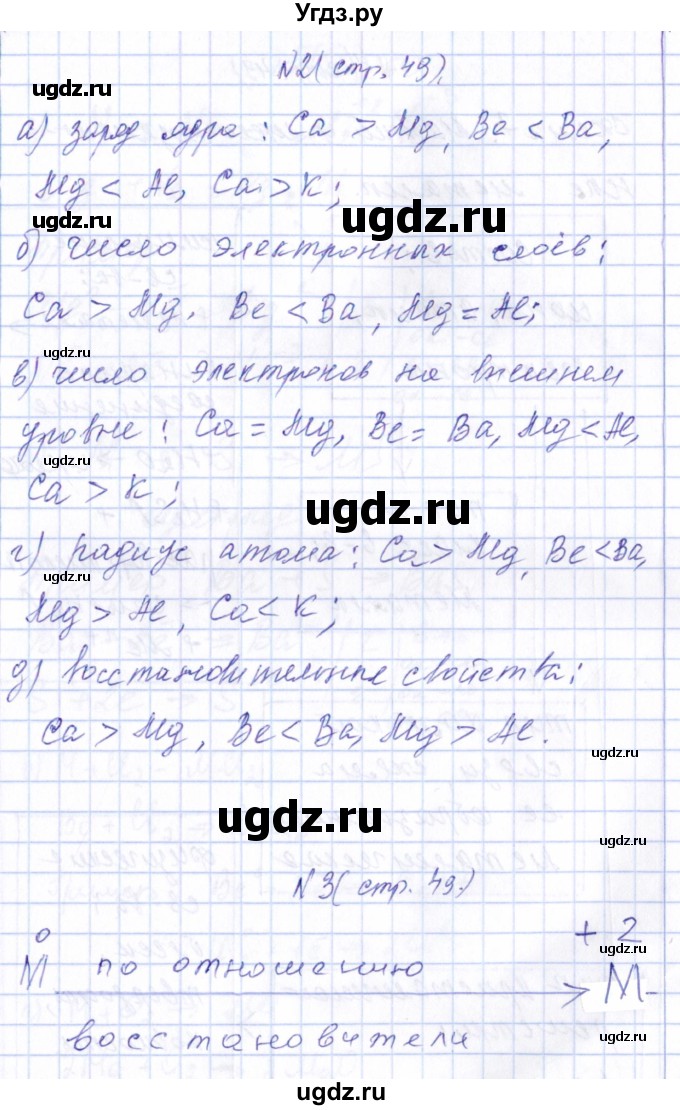 Угдз.ру
№2 (стр. 49).
ugdz.ru ugdz.ru
а) заряд ядра : Ca > Mg, Be < Ba,
Mg < Al, Ca > K;
ugdz.ru ugdz.ru
б) число электронных слоёв:
Ca > Mg, Be < Ba, Mg = Al;
ugdz.ru
в) число электронов на внешнем
уровне : Ca = Mg, Be = Ba, Mg < Al,
ugdz.ru
Ca > K ;
ugdz.ru
г) радиус атома: Ca > Mg, Be < Ba,
ugdz.ru
Mg > Al, Ca < K;
д) восстановительные свойства:
ugdz.ru
Ca > Mg, Be < Ba, Mg > Al.
ugdz.ru
ugdz.ru
ugdz.ru
№3 (стр. 49.)
0 +2
ugdz.ru
M по отношению → M -
восстановители
ugdz.ru
ugdz.ru